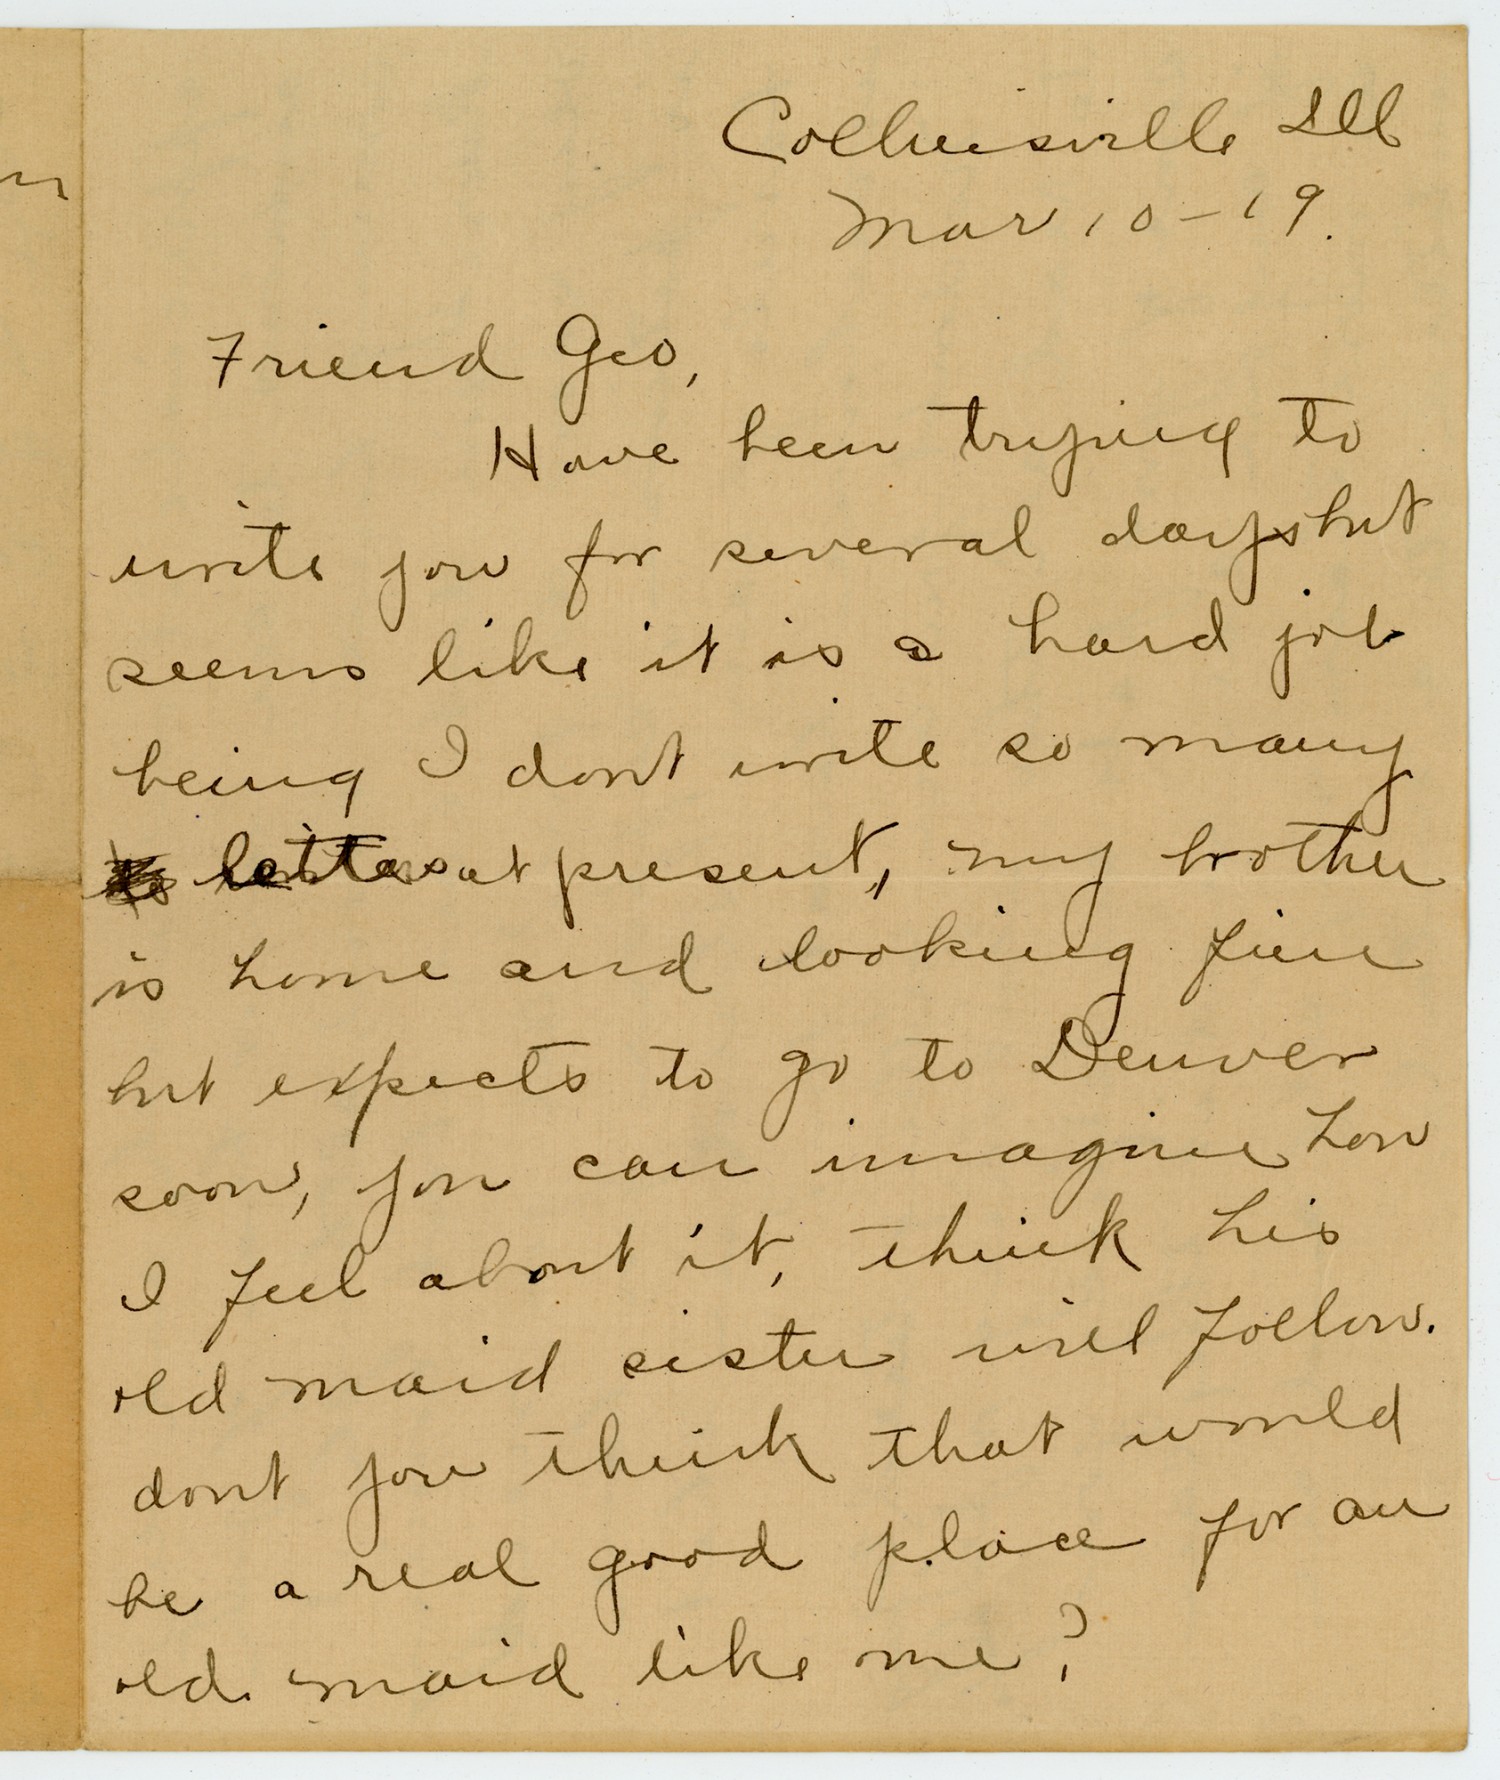 Collinsville Ill
Mar 10-19.
Friend Geo,
Have been trying to
write you for several days but
seems like it is a hard job
being I dont write so many
letters at present, my brother
is home and looking fine
but expects to go to Denver
soon, you can imagine how
I feel about it, think his
old maid sister will follow.
dont you think that would
be a real good place for an
old maid like me?